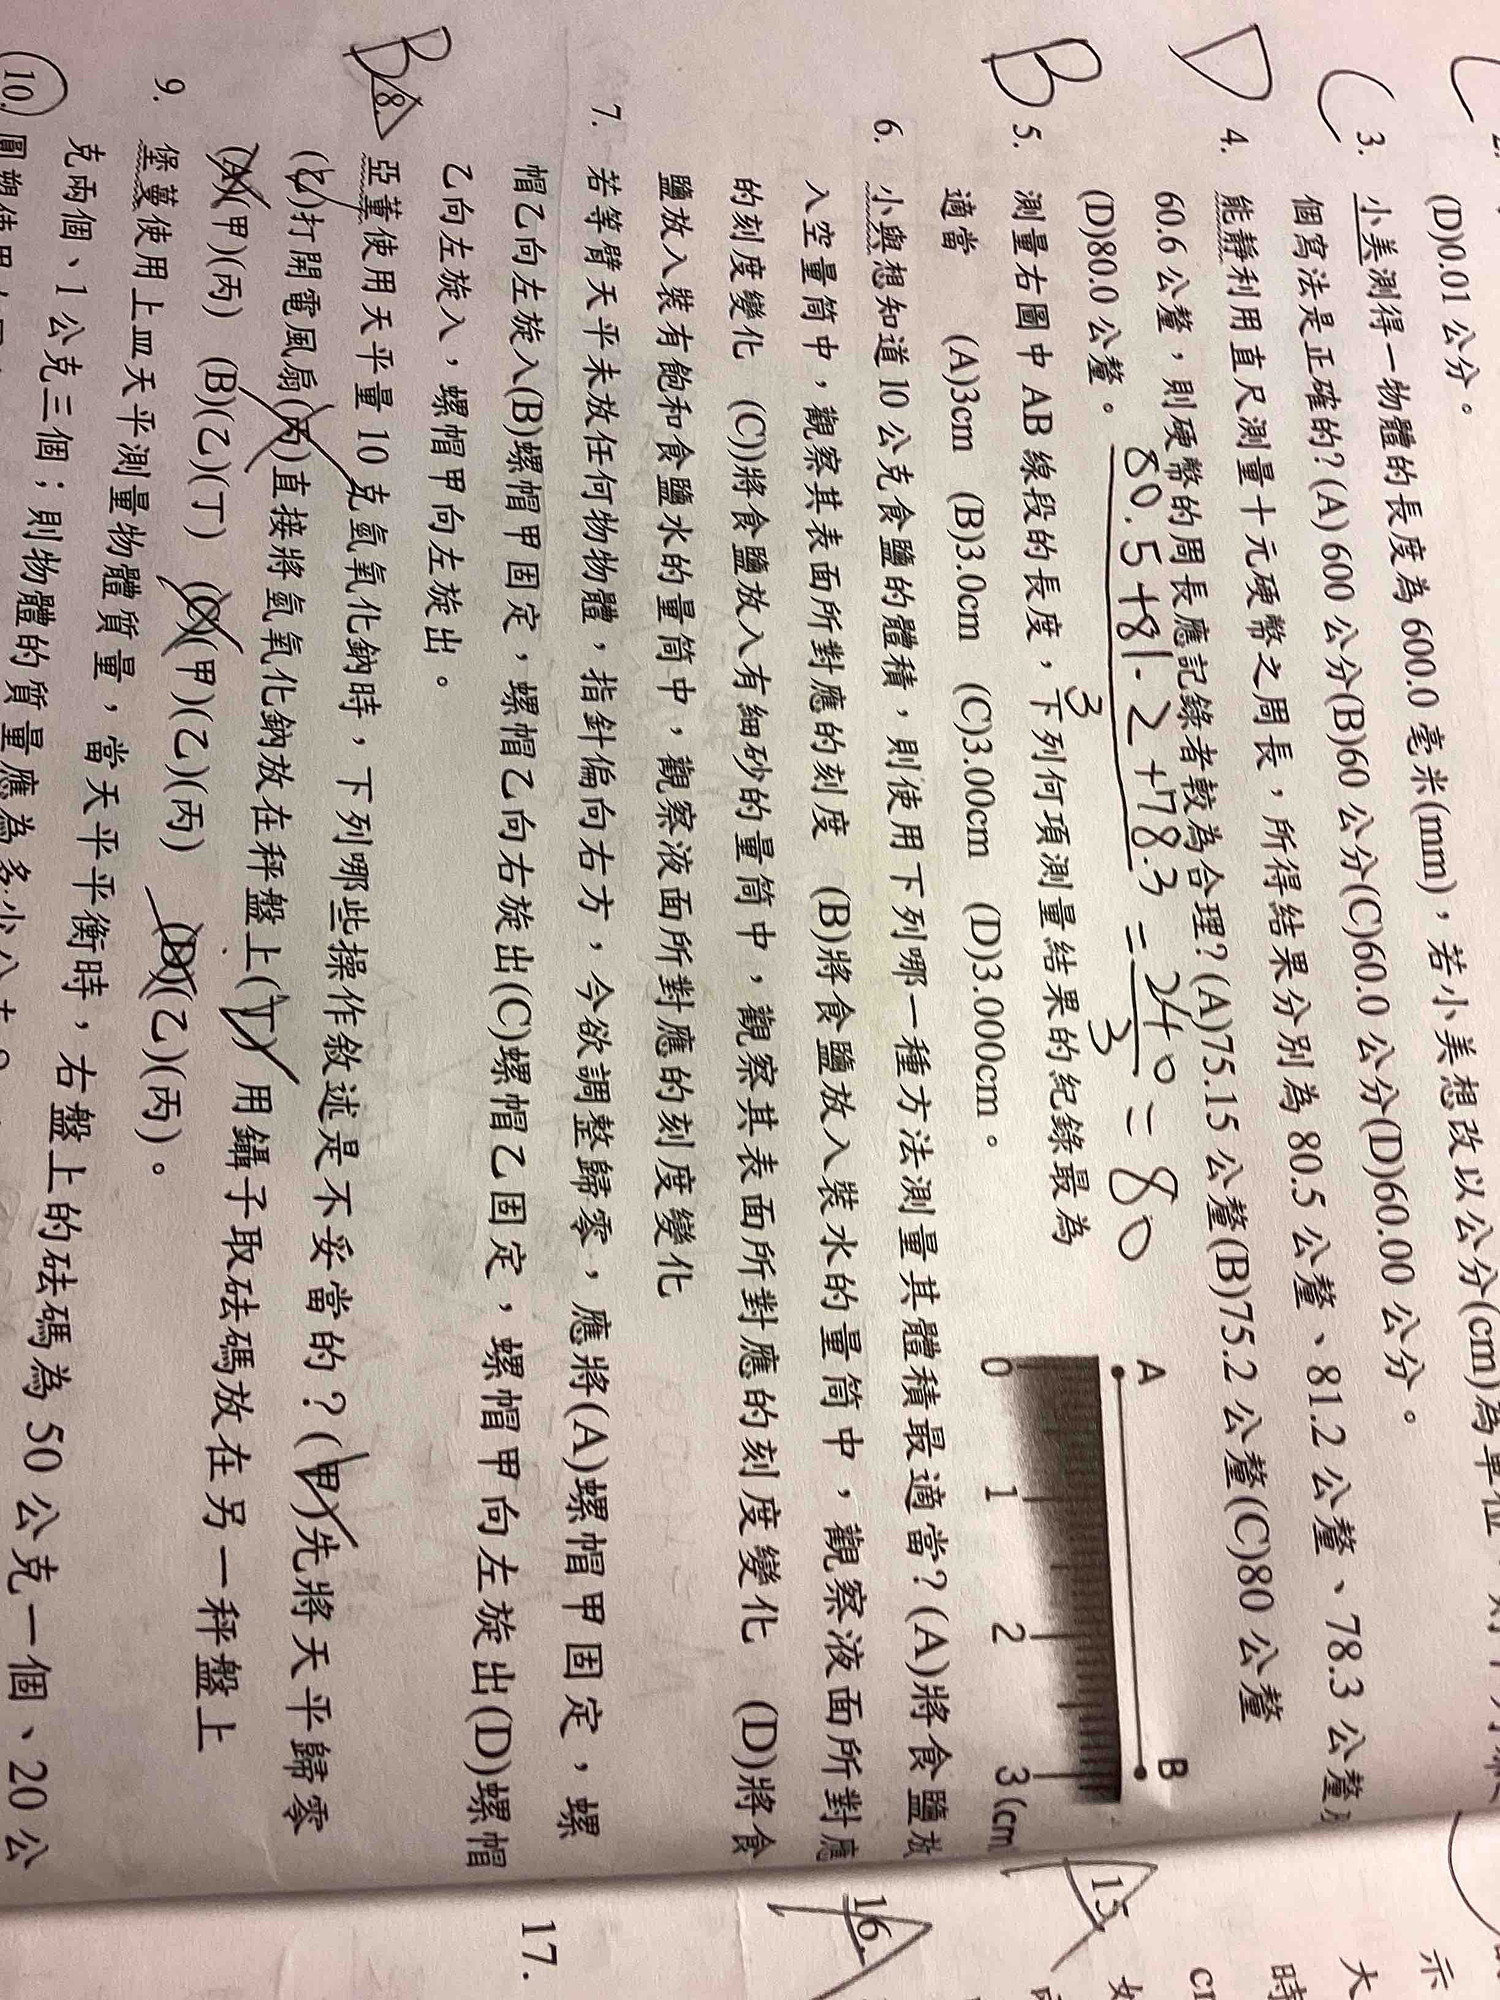 (D)0.01 公分。
C 3. 小美測得一物體的長度為 600.0 毫米(mm)，若小美想改以公分(cm)為單位
個寫法是正確的? (A) 600 公分(B)60 公分(C)60.0 公分(D)60.00 公分。
D 4. 能靜利用直尺測量十元硬幣之周長，所得結果分別為 80.5 公釐、81.2 公釐、78.3 公釐
60.6 公釐，則硬幣的周長應記錄者較為合理? (A)75.15 公釐(B)75.2 公釐(C)80 公釐
(D)80.0 公釐。
80.5+81.2+78.3 = 240 = 80
3 3
B 5. 測量右圖中 AB 線段的長度，下列何項測量結果的紀錄最為
適當 (A)3cm (B)3.0cm (C)3.00cm (D)3.000cm。
A B
0 1 2 3 (cm
6. 小與想知道 10 公克食鹽的體積，則使用下列哪一種方法測量其體積最適當? (A)將食鹽放
入空量筒中，觀察其表面所對應的刻度 (B)將食鹽放入裝水的量筒中，觀察液面所對應
的刻度變化 (C))將食鹽放入有細砂的量筒中，觀察其表面所對應的刻度變化 (D)將食
鹽放入裝有飽和食鹽水的量筒中，觀察液面所對應的刻度變化
7. 若等臂天平未放任何物物體，指針偏向右方，今欲調整歸零，應將(A)螺帽甲固定，螺
帽乙向左旋入(B)螺帽甲固定，螺帽乙向右旋出(C)螺帽乙固定，螺帽甲向左旋出(D)螺帽
乙向左旋入，螺帽甲向左旋出。
B 8. 亞董使用天平量 10 克氫氧化鈉時，下列哪些操作敘述是不妥當的? (甲)先將天平歸零
(乙)打開電風扇(丙)直接將氫氧化鈉放在秤盤上(丁) 用鑷子取砝碼放在另一秤盤上
(A)(甲)(丙) (B)(乙)(丁) (C)(甲)(乙)(丙) (D)(乙)(丙)。
9. 堡蔓使用上皿天平測量物體質量，當天平平衡時，右盤上的砝碼為 50 公克一個、20 公
克兩個、1 公克三個；則物體的質量應為多少公克？
10.
15.
16.
17.
示
大
時
如